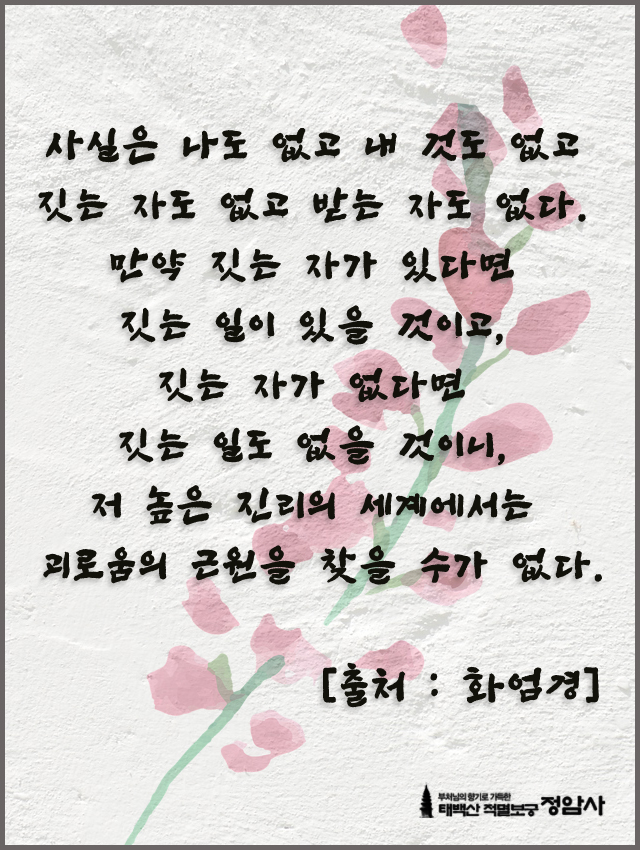 사실은 나도 없고 내 것도 없고
짓는 자도 없고 받는 자도 없다.
만약 짓는 자가 있다면
짓는 일이 있을 것이고,
짓는 자가 없다면
짓는 일도 없을 것이니,
저 높은 진리의 세계에서는
괴로움의 근원을 찾을 수가 없다.
[출처 : 화엄경]
부처님의 향기로 가득한
태백산 적멸보궁 정암사